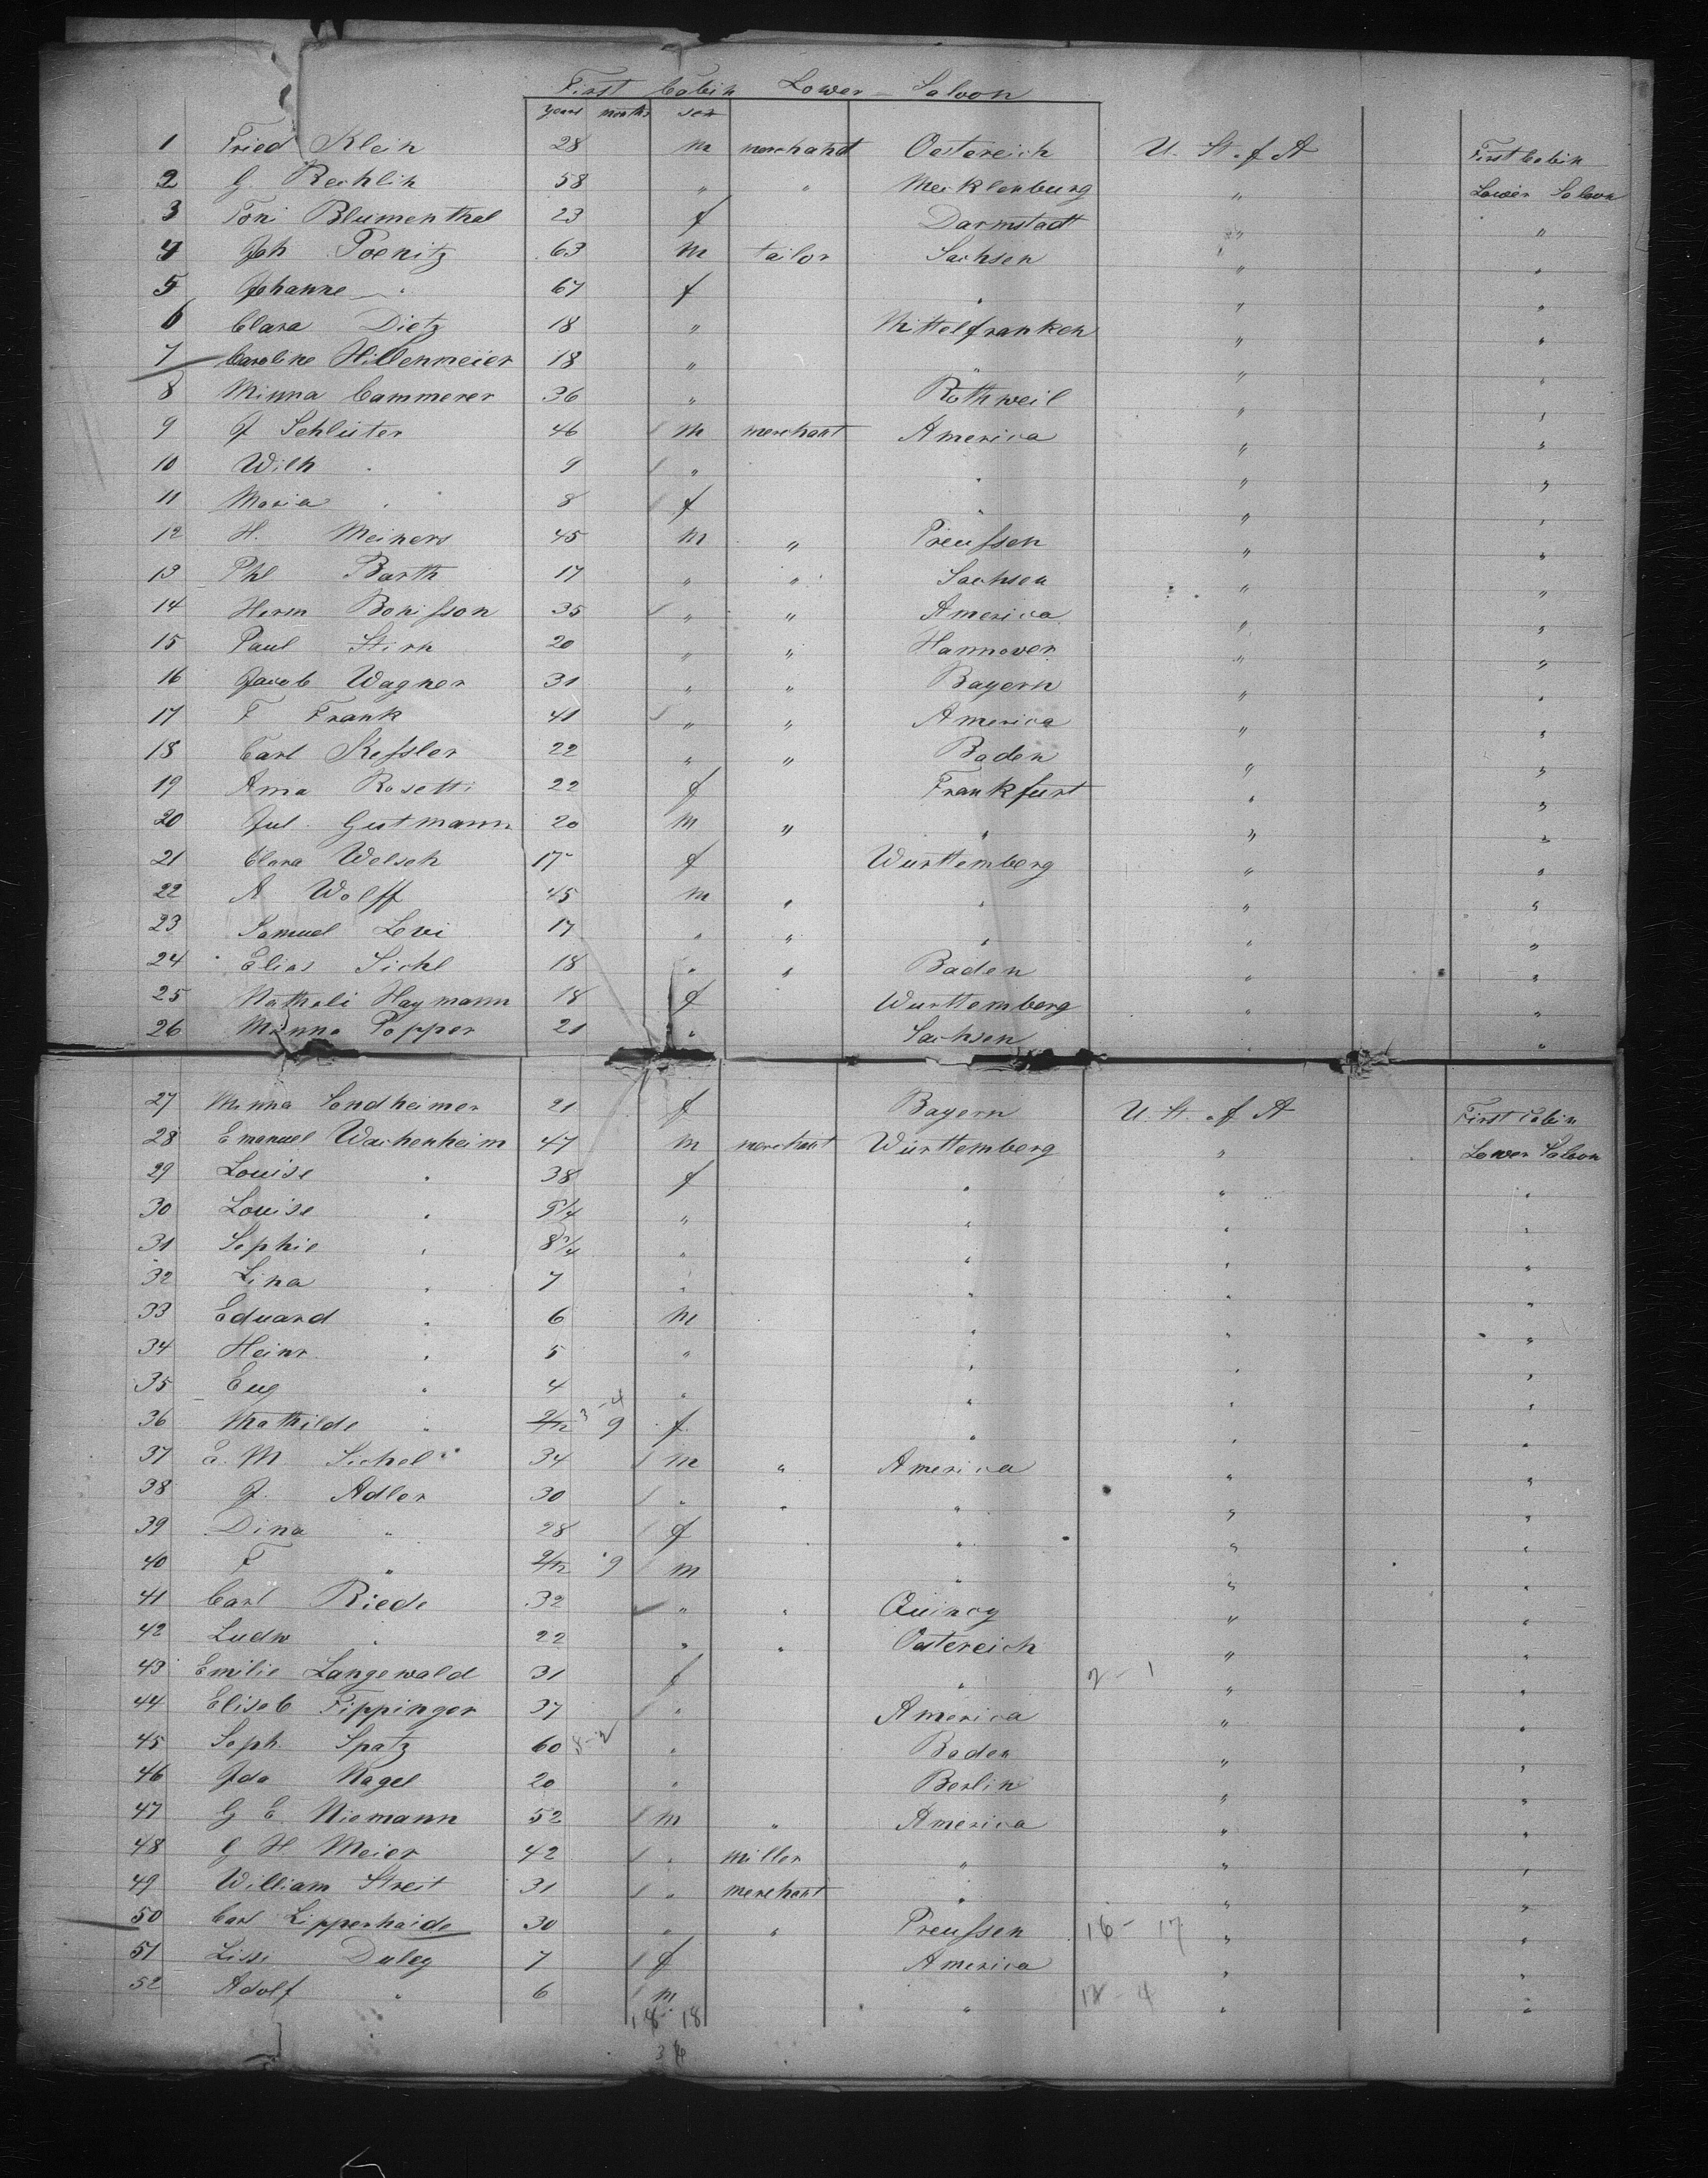 First Cabin Lower-Saloon
years months sex
1 Fried Klein 28 m merchand Oestereich U. St. of A First Cabin
2 G. Rechlin 58 " " Mecklenburg " Lower Saloon
3 Toni Blumenthal 23 f Darmstadt " "
4 Joh Poenitz 63 m tailor Sachsen " "
5 Johanne " 67 f " " "
6 Clara Dietz 18 " Mittelfranken " "
7 Caroline Hillenmeier 18 " " " "
8 Minna Cammerer 36 " Rothweil " "
9 J Schlüter 46 m merchant America " "
10 Wilh " 9 " " " "
11 Maria " 8 f " " "
12 H. Meiners 45 m " Preussen " "
13 Phl Barth 17 " " Sachsen " "
14 Herm Bonisson 35 " " America " "
15 Paul Stirn 20 " " Hannover " "
16 Jacob Wagner 31 " " Bayern " "
17 F Frank 41 " " America " "
18 Carl Kessler 22 " " Baden " "
19 Anna Rosetti 22 f Frankfurt " "
20 Jul. Gutmann 20 m " " " "
21 Clara Welsch 17 f Württemberg " "
22 A Wolff 45 m " " " "
23 Samuel Levi 17 " " " " "
24 Elias Sichl 18 " " Baden " "
25 Nathali Haymann 18 f Wurttemberg " "
26 Minna Popper 21 " Sachsen " "
27 Minna Sondheimer 21 f Bayern U. St. of A First Cabin
28 Emanuel Wachenheim 47 m merchant Württemberg " Lower Saloon
29 Louise " 38 f " " "
30 Louise " 9 1/4 " " " "
31 Sophie " 8 3/4 " " " "
32 Lina " 7 " " " "
33 Eduard " 6 m " " "
34 Heinr. " 5 " " " "
35 Eug " 4 " " " "
36 Mathilde " 9/12 3-4 9 f " " "
37 E. M Sichel 34 m " America " "
38 J. Adler 30 " " " " "
39 Dina " 28 f " " "
40 F " 9/12 9 m " " "
41 Carl Riede 32 " " Quincy " "
42 Ludw " 22 " " Oestereich " "
43 Emilie Langewald 31 f " 2-1 " "
44 Eliseb Fippinger 37 " America " "
45 Soph. Spatz 60 8-2 " Baden " "
46 Ida Nagel 20 " Berlin " "
47 G E Niemann 52 m " America " "
48 G H Meier 42 " miller " " "
49 William Streit 31 " merchant " " "
50 Carl Lipperhaide 30 " " Preussen 16-17 " "
51 Lissi Duley 7 f America " "
52 Adolf " 6 m " 12-4 " "
18 18